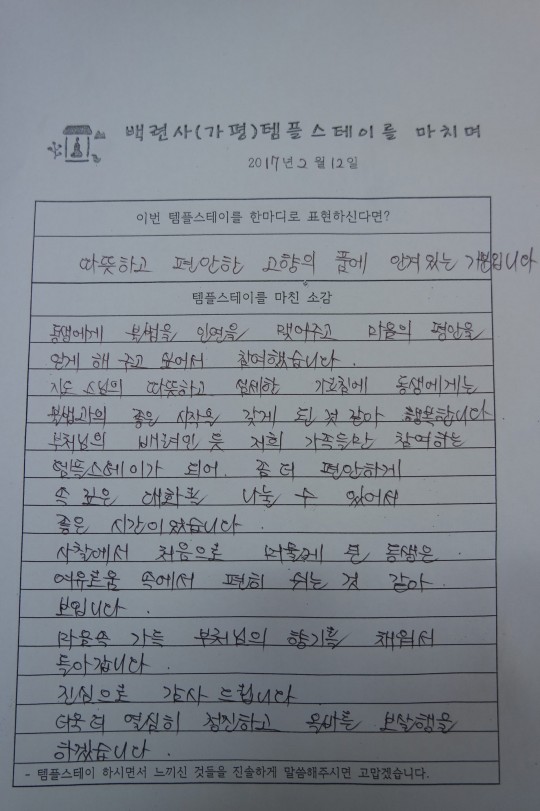 백련사(가평)템플스테이를 마치며
2017년 2월 12일
이번 템플스테이를 한마디로 표현하신다면?
따뜻하고 편안한 고향의 품에 안겨있는 기분입니다
템플스테이를 마친 소감
동생에게 불법을 인연을 맺어주고 마음의 평안을
얻게 해 주고 싶어서 참여했습니다.
지도 스님의 따뜻하고 섬세한 가르침에 동생에게는
불법과의 좋은 시작을 갖게 된 것 같아 행복합니다.
부처님의 배려인 듯 저희 가족들만 참여하는
템플스테이가 되어 좀 더 편안하게
속 깊은 대화를 나눌 수 있어서
좋은 시간이었습니다.
사찰에서 처음으로 머물게 된 동생은
여유로움 속에서 편히 쉬는 것 같아
보입니다.
마음속 가득 부처님의 향기를 채워서
돌아갑니다.
진심으로 감사 드립니다.
더욱 더 열심히 정진하고 올바른 보살행을
하겠습니다.
- 템플스테이 하시면서 느끼신 것들을 진솔하게 말씀해주시면 고맙겠습니다.